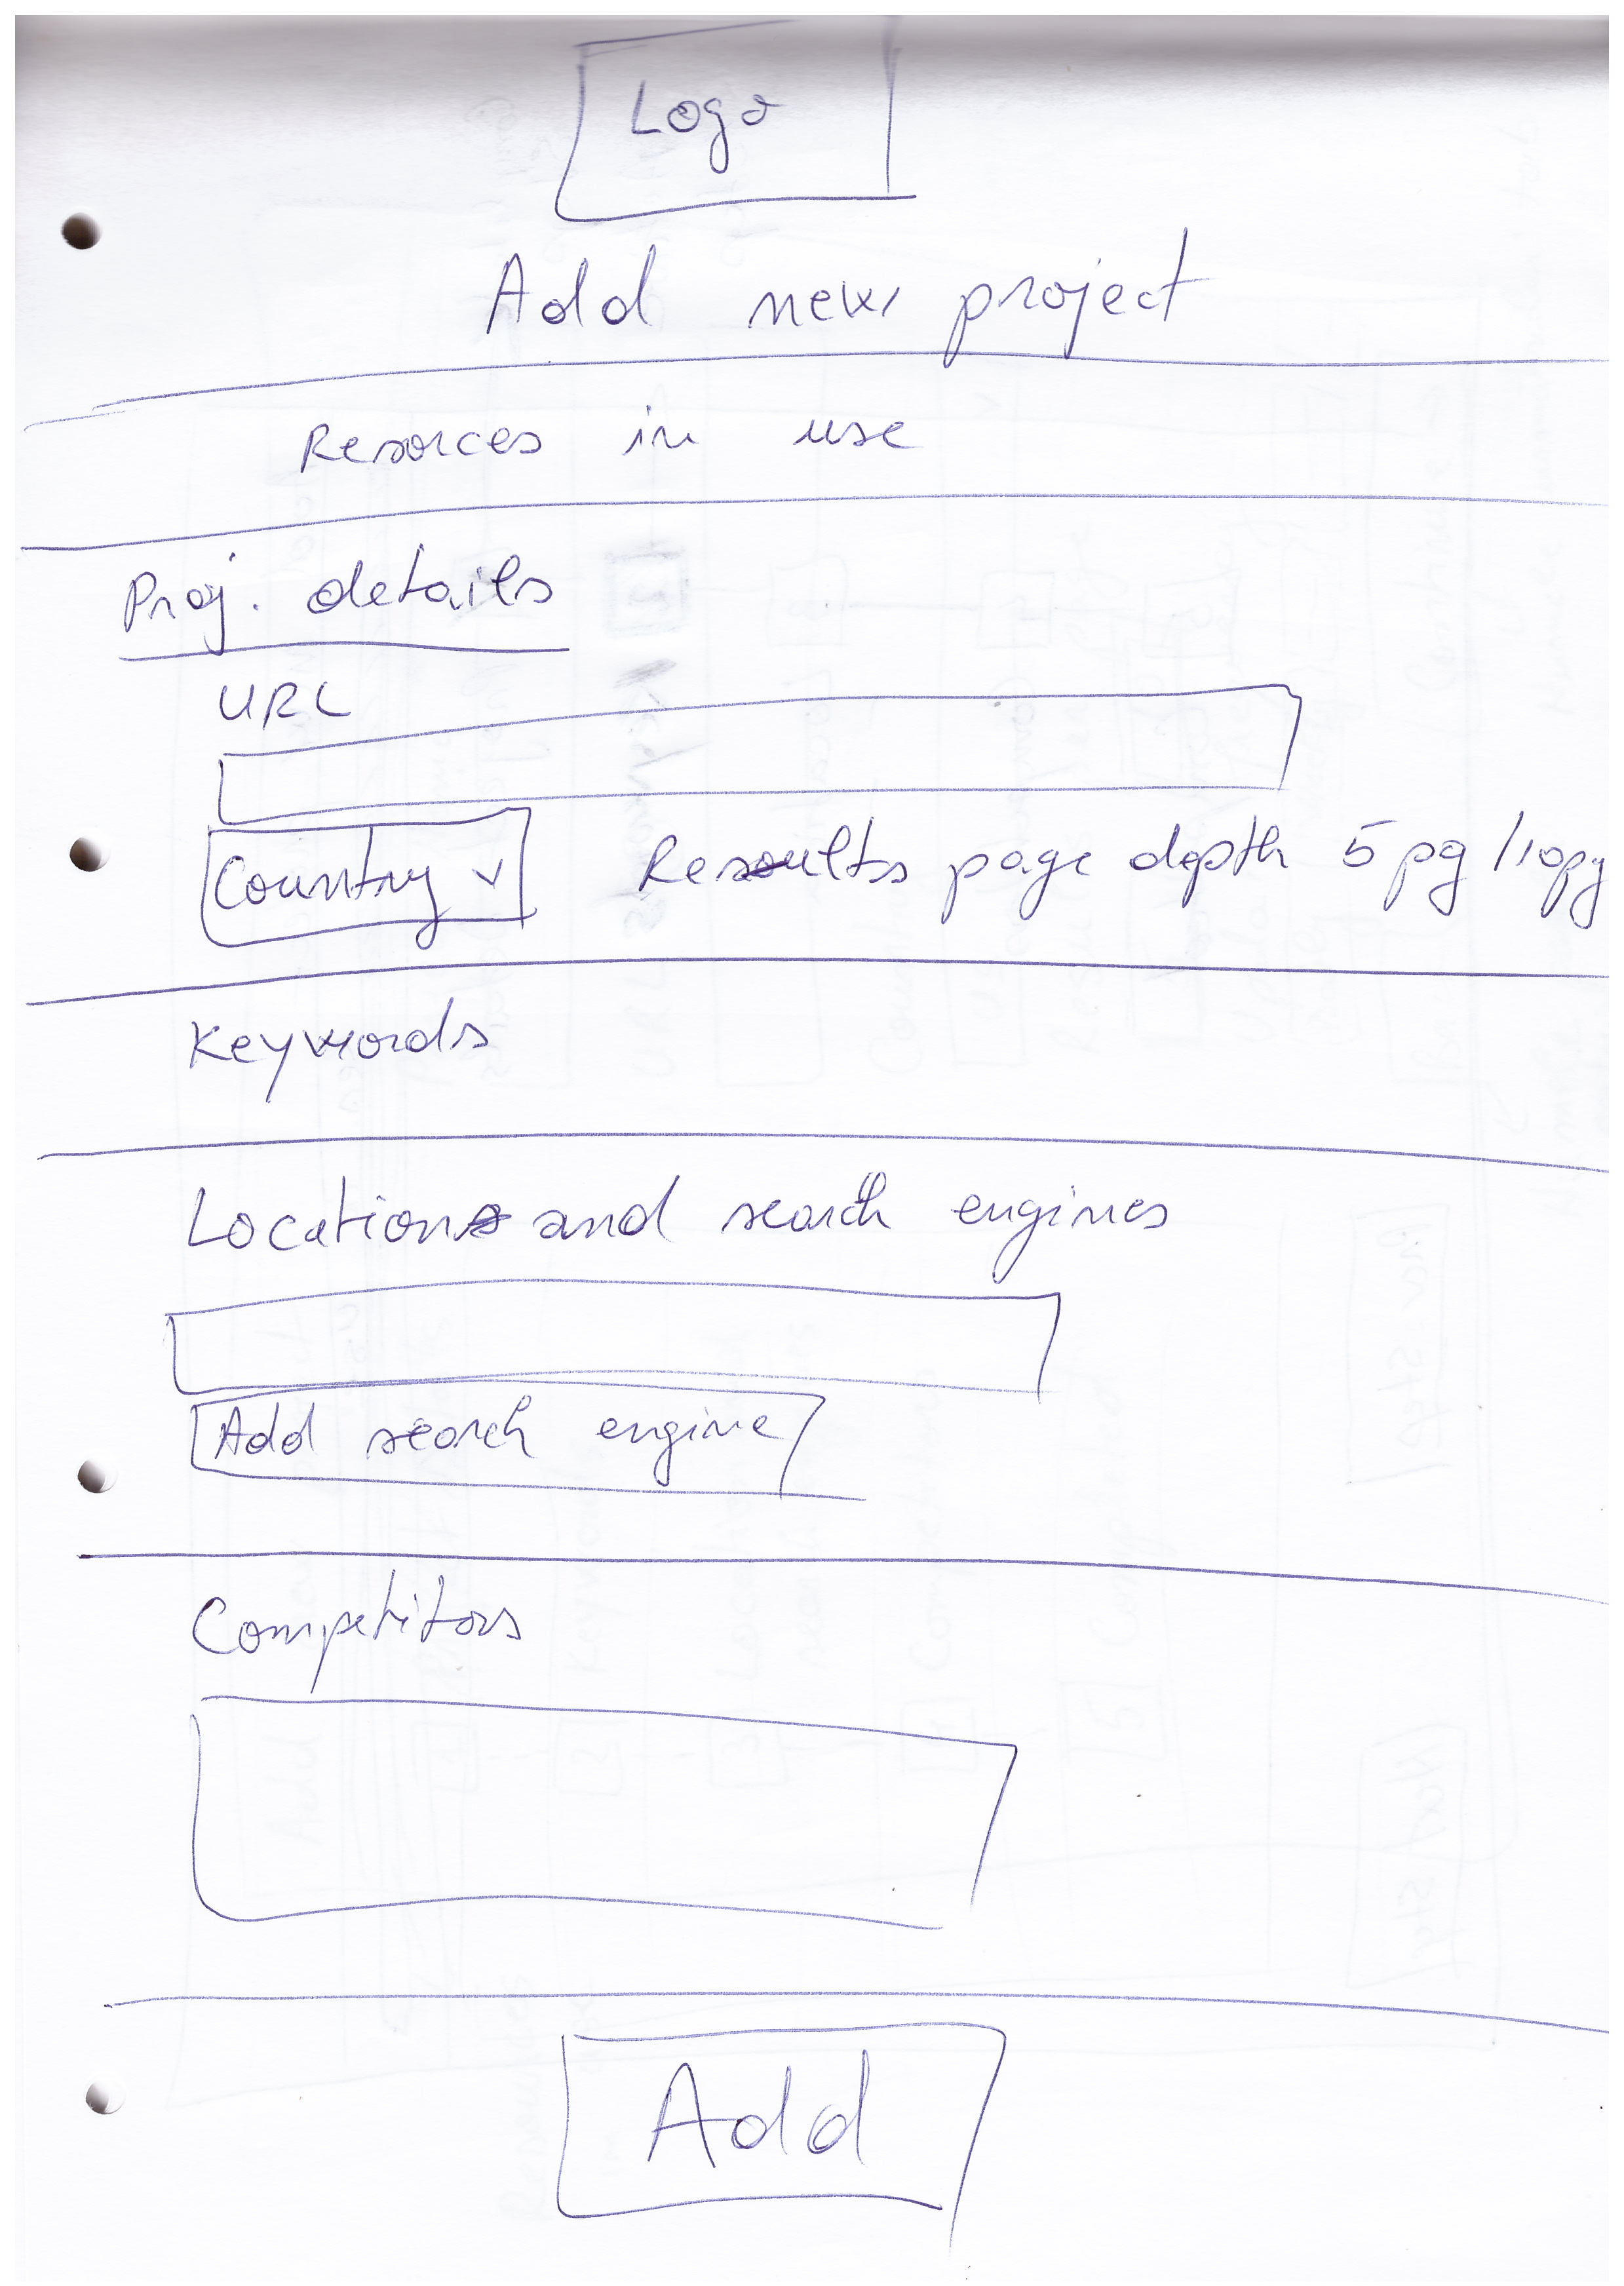 Logo
Add new project
Resorces in use
Proj. details
URL
Country v Results page depth 5pg/10pg
Keywords
Location and search engines
Add search engine
Competitors
Add